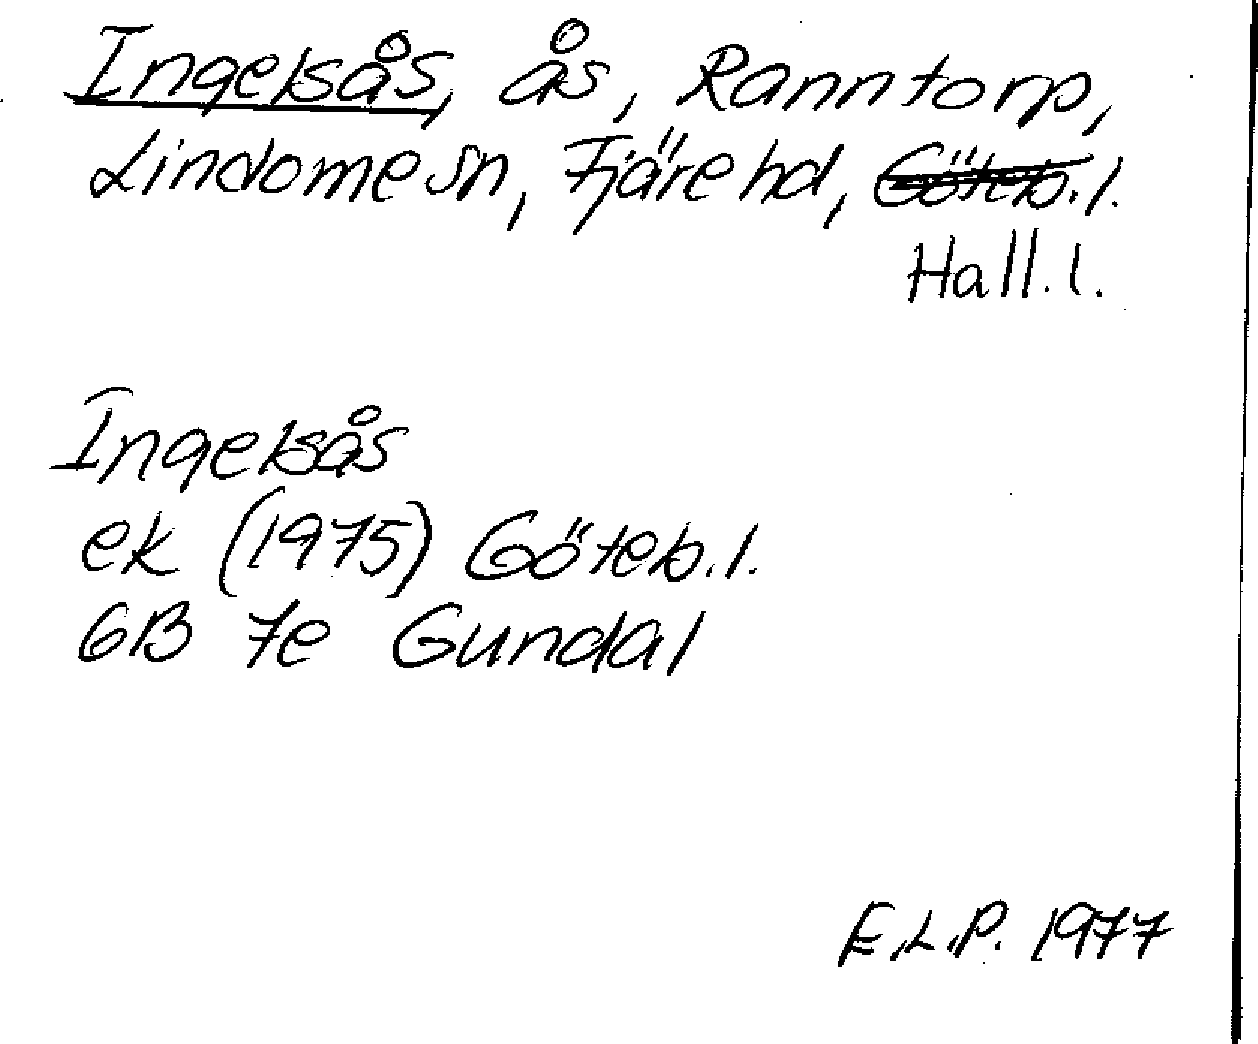 Ingelsås, ås, Ranntorp,
Lindome sn, Fjäre hd, Göteb. l.
Hall. l.
Ingelsås
ek (1975) Göteb. l.
6B 7e Gundal
E.L.P. 1977